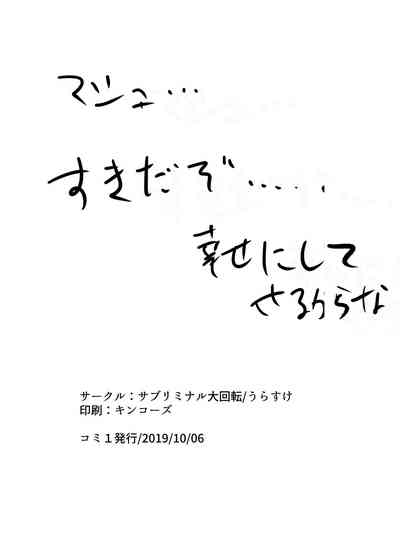 マシュ…
すきだぞ……
幸せにして
やるからな
サークル：サブリミナル大回転/うらすけ
印刷：キンコーズ
コミ１発行/2019/10/06